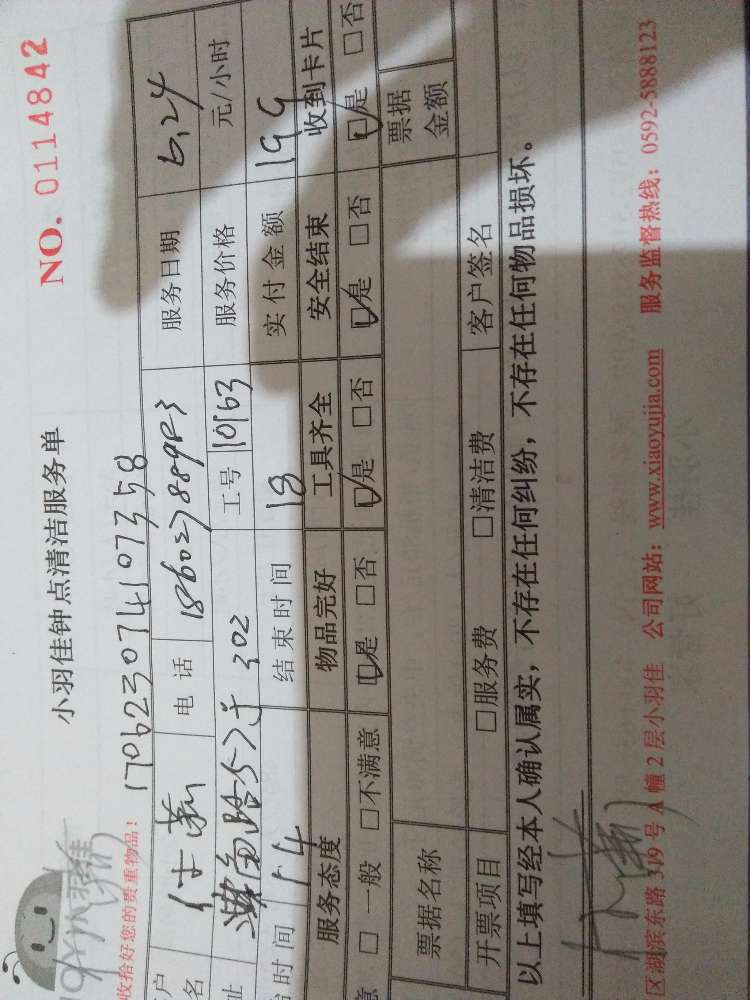 小羽佳钟点清洁服务单 NO. 0114842
小羽佳
收拾好您的贵重物品! 170623074107358
户 名 电 话 服务日期 6.24
址 302 工号 10163 服务价格 元/小时
始时间 14 结束时间 18 实付金额 199
服务态度 物品完好 工具齐全 安全结束 收到卡片
意 □ 一般 □不满意 □是 □否 □是 □否 □是 □否 □是 □否
票据名称 票据金额
开票项目 □服务费 □清洁费 客户签名
以上填写经本人确认属实，不存在任何纠纷，不存在任何物品损坏。
区湖滨东路 319 号 A 幢 2 层小羽佳 公司网站：www.xiaoyujia.com 服务监督热线：0592-5888123